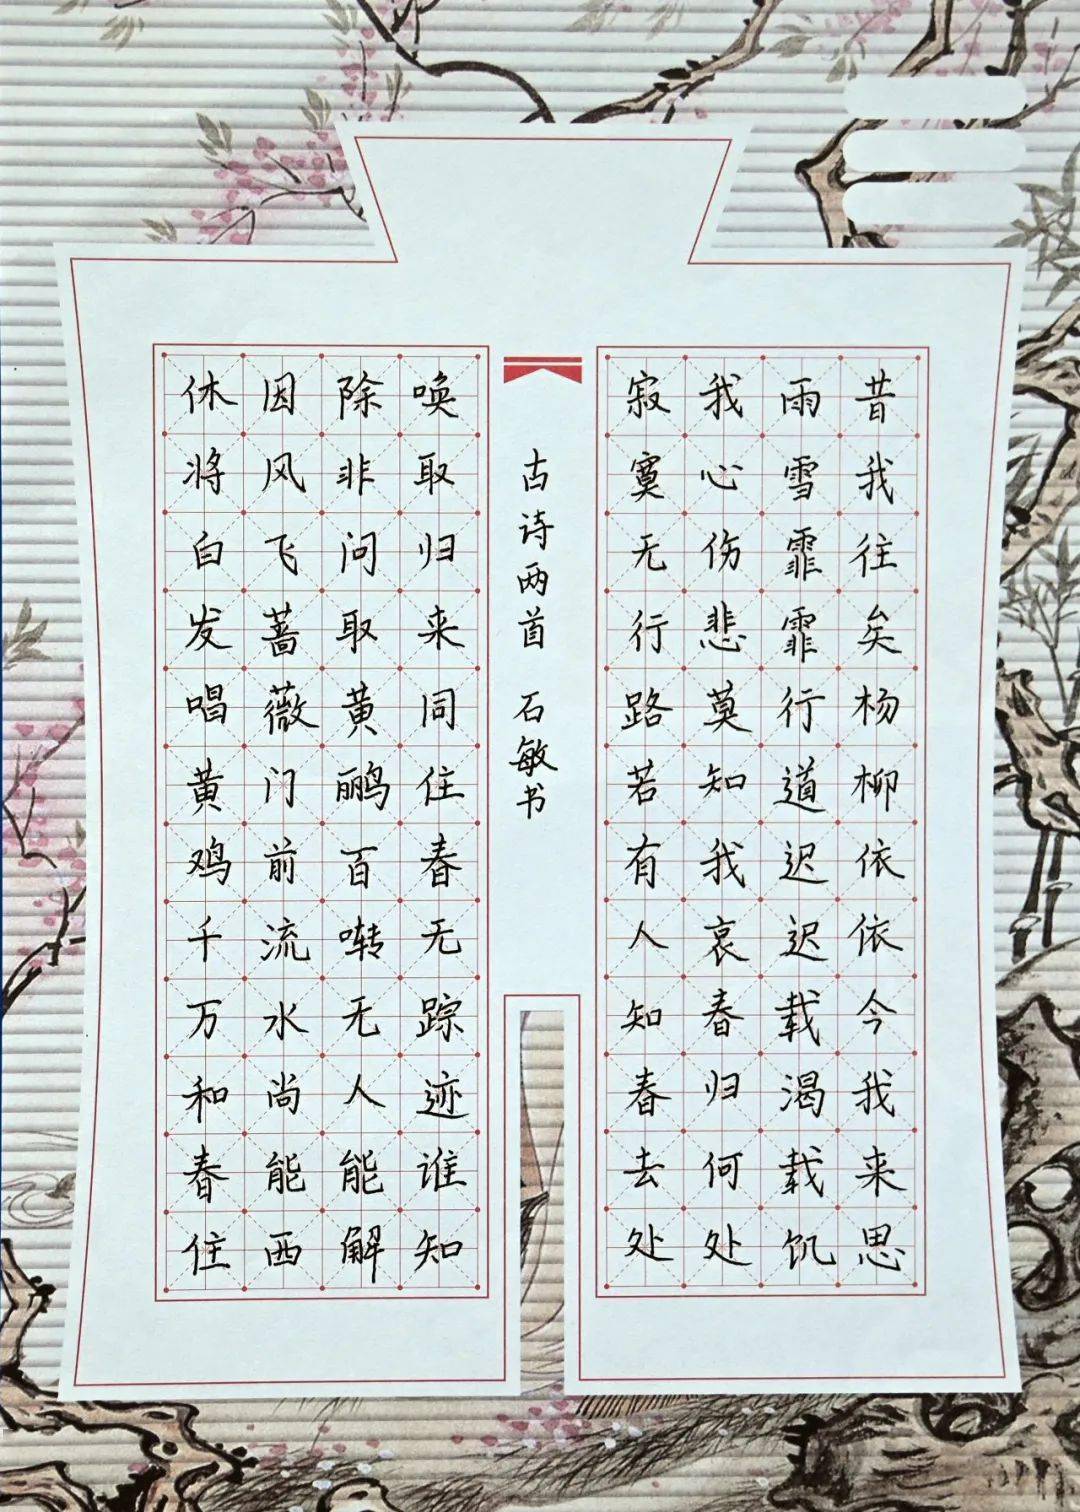 昔我往矣杨柳依依今我来思
雨雪霏霏行道迟迟载渴载饥
我心伤悲莫知我哀春归何处
寂寞无行路若有人知春去处
古诗两首 石敏书
唤取归来同住春无踪迹谁知
除非问取黄鹂百啭无人能解
因风飞蔷薇门前流水尚能西
休将白发唱黄鸡千万和春住